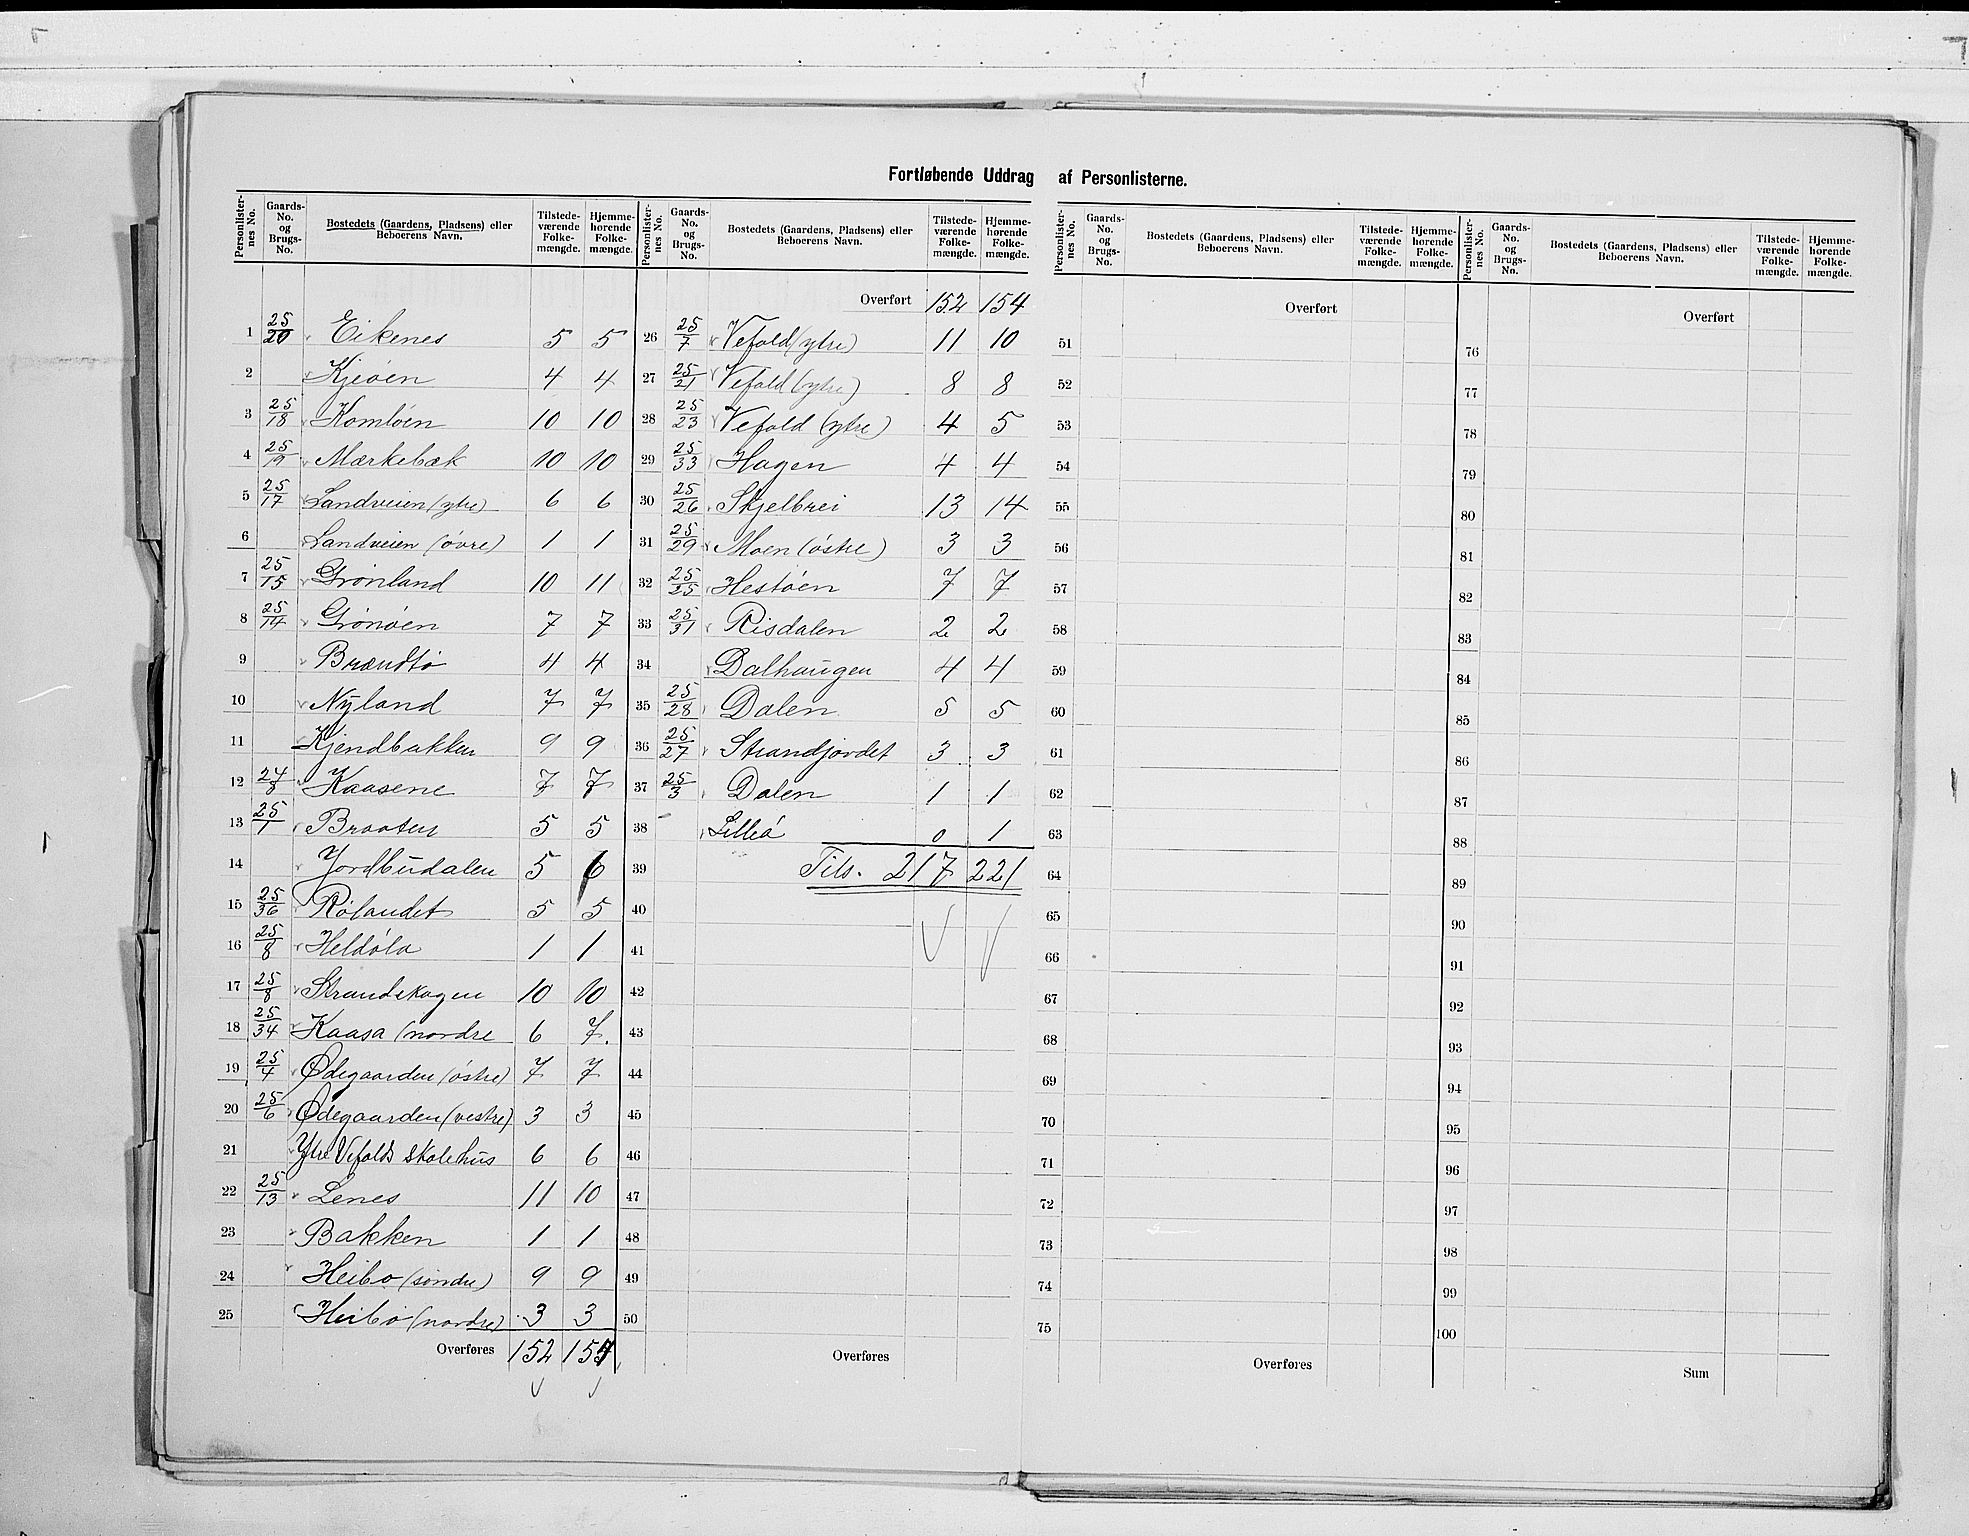 Fortløbende Uddrag af Personlisterne.
Personlister-nes No. | Gaards-No. og Brugs-No. | Bostedets (Gaardens, Pladsens) eller Beboerens Navn. | Tilstede-værende Folke-mængde. | Hjemme-hørende Folke-mængde.
1 25/20 Eikenes 5 5
2 Kjeöen 4 4
3 25/18 Komlöen 10 10
4 25/19 Mærkebæk 10 10
5 25/17 Landveien (ytre) 6 6
6 Landveien (övre) 1 1
7 25/15 Grönland 10 11
8 25/14 Grönöen 7 7
9 Brændtö 4 4
10 Nyland 7 7
11 Kjendbakken 9 9
12 24/8 Kaasene 7 7
13 25/1 Braaten 5 5
14 Jordbudalen 5 6
15 25/36 Rölandet 5 5
16 25/8 Heldöla 1 1
17 25/8 Strandskogen 10 10
18 25/34 Kaasa (nordre 6 7.
19 25/4 Ødegaarden (östre) 7 7
20 25/6 Ødegaarden (vestre) 3 3
21 Ytre Vefalds skolehus 6 6
22 25/13 Lenes 11 10
23 Bakken 1 1
24 Heibö (söndre) 9 9
25 Heibö (nordre) 3 3
Overføres 152 154
Personlister-nes No. | Gaards-No. og Brugs-No. | Bostedets (Gaardens, Pladsens) eller Beboerens Navn. | Tilstede-værende Folke-mængde. | Hjemme-hørende Folke-mængde.
Overført 152 154
26 25/7 Vefald (ytre) 11 10
27 25/21 Vefald (ytre) 8 8
28 25/23 Vefald (ytre) 4 5
29 25/33 Hagen 4 4
30 25/26 Skjelbrei 13 14
31 25/29 Moen (östre) 3 3
32 25/25 Hestöen 7 7
33 25/31 Risdalen 2 2
34 Dalhaugen 4 4
35 25/28 Dalen 5 5
36 25/27 Strandjordet 3 3
37 25/3 Dalen 1 1
38 Lilleö 0 1
39 Tils. 217 221
40
41
42
43
44
45
46
47
48
49
50
Overføres
Personlister-nes No. | Gaards-No. og Brugs-No. | Bostedets (Gaardens, Pladsens) eller Beboerens Navn. | Tilstede-værende Folke-mængde. | Hjemme-hørende Folke-mængde.
Overført
51
52
53
54
55
56
57
58
59
60
61
62
63
64
65
66
67
68
69
70
71
72
73
74
75
Overføres
Personlister-nes No. | Gaards-No. og Brugs-No. | Bostedets (Gaardens, Pladsens) eller Beboerens Navn. | Tilstede-værende Folke-mængde. | Hjemme-hørende Folke-mængde.
Overført
76
77
78
79
80
81
82
83
84
85
86
87
88
89
90
91
92
93
94
95
96
97
98
99
100
Sum